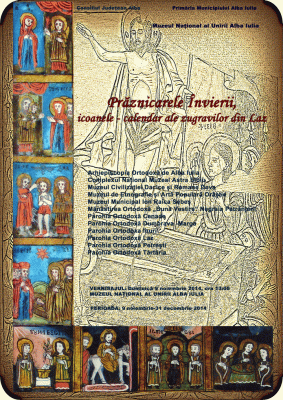 Consiliul Judeţean Alba
Primăria Municipiului Alba Iulia
Muzeul Naţional al Unirii Alba Iulia
Prăznicarele Învierii,
icoanele - calendar ale zugravilor din Laz
Arhiepiscopia Ortodoxă de Alba Iulia
Complexul Naţional Muzeal Astra Sibiu
Muzeul Civilizaţiei Dacice şi Romane Deva
Muzeul de Etnografie şi Artă Populară Orăştie
Muzeul Municipal Ion Raica Sebeş
Mănăstirea Ortodoxă „Buna Vestire”
Parohia Ortodoxă Cenade
Parohia Ortodoxă Dumbrava
Parohia Ortodoxă
Parohia Ortodoxă Laz
Parohia Ortodoxă Petreşti
Parohia Ortodoxă Tărtăria
VERNISAJUL: Duminică 9 noiembrie 2014, ora 13:00
MUZEUL NAŢIONAL AL UNIRII ALBA IULIA
PERIOADA: 9 noiembrie-31 decembrie 2014